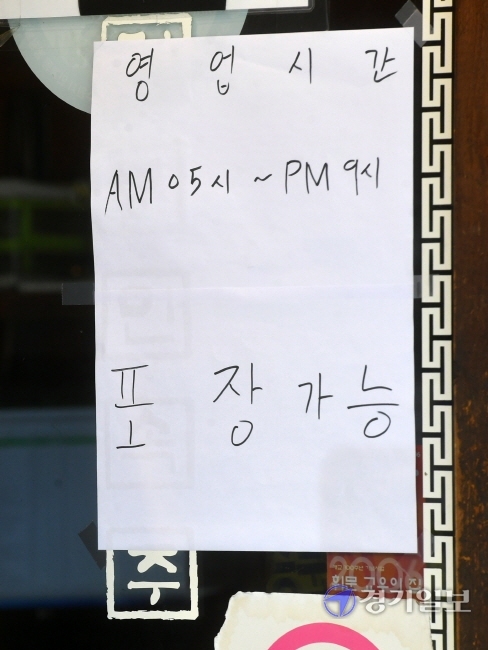 영 업 시 간
AM 05시 ~ PM 9시
포 장 가 능
주
경기일보